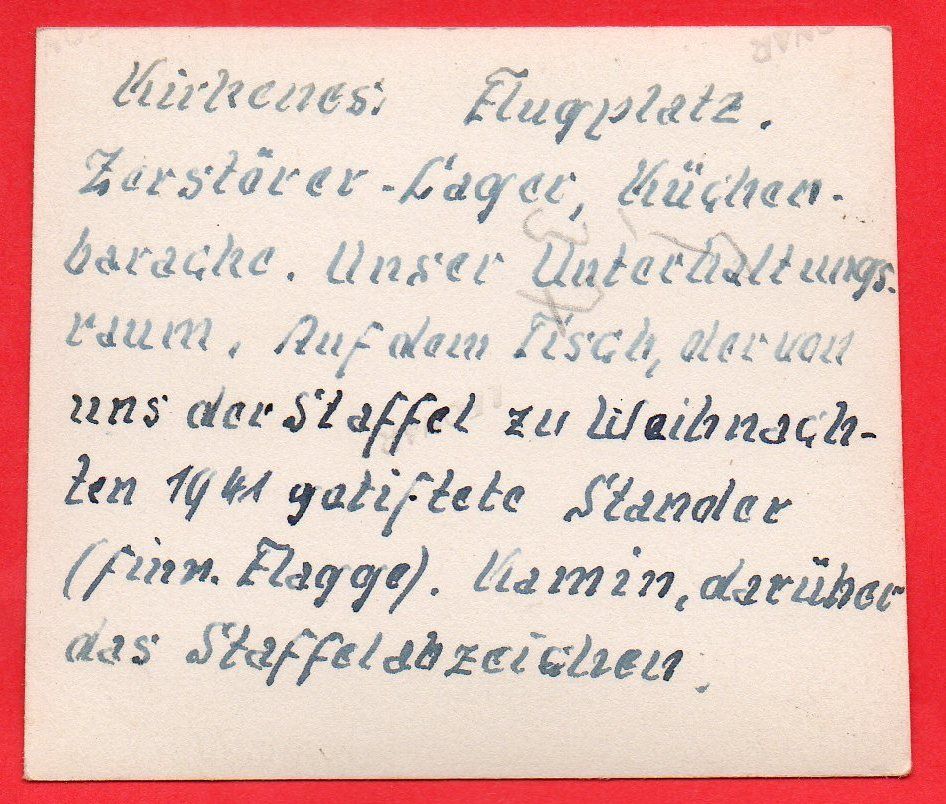 Kirkenes: Flugplatz.
Zerstörer-Lager, Küchen-
barache. Unser Unterhaltungs-
raum. Auf dem Tisch, der von
uns der Staffel zu Weihnach-
ten 1941 getiftete Stander
(finn. Flagge). Kamin, darüber
das Staffelabzeichen.